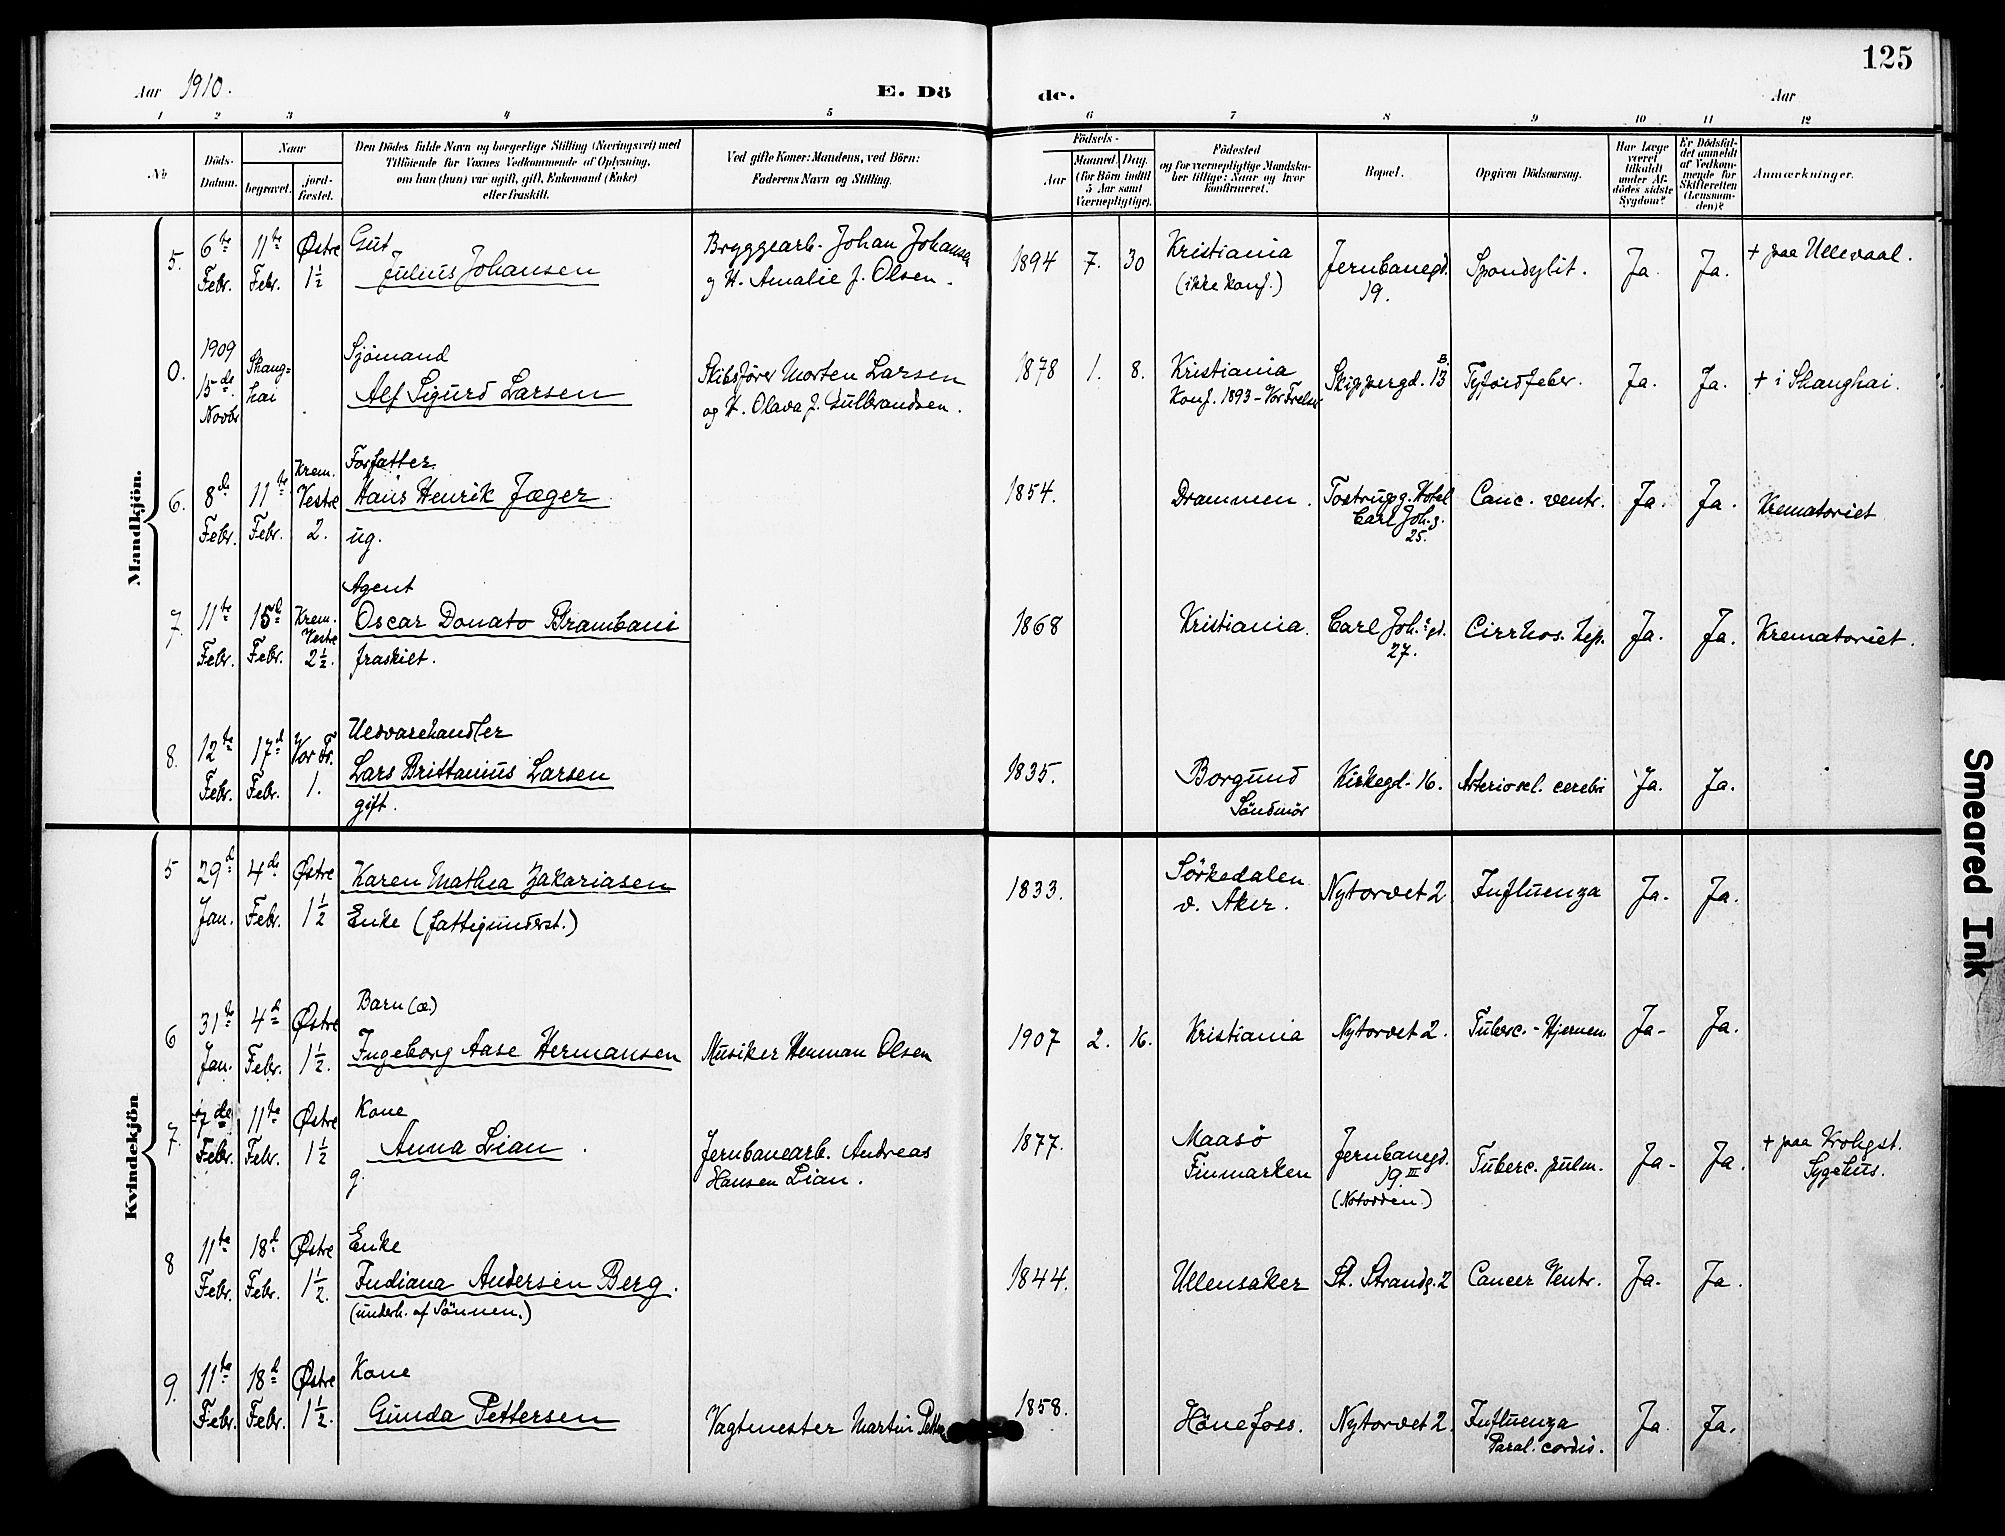 125
Aar 1910.
E. Dö
de.
Aar
1 2 3 4 5 6 7 8 9 10 11 12
No
Döds-Datum.
Naar
begravet.
jordfæstet.
Den Dödes fulde Navn og borgerlige Stilling (Næringsvei) med
Tilföiende for Voxnes Vedkommende af Oplysning,
om han (hun) var ugift, gift, Enkemand (Enke)
eller fraskilt.
Ved gifte Koner: Mandens, ved Börn:
Faderens Navn og Stilling.
Födsels-
Aar
Maaned. Dag.
(for Börn indtil
5 Aar samt
Værnepligtige).
Födested
og for værnepligtige Mandskaber tillige: Naar og hvor
konfirmeret.
Bopæl.
Opgiven Dödsaarsag.
Har Læge
været
tilkaldt
under Afdödes sidste
Sygdom?
Er Dödsfaldet anmeldt
af Vedkommende for
Skifteretten
(Lensmanden)?
Anmærkninger.
Mandkjön.
5. 6te Febr. 11te Febr. Østre 1½
Gut
Julius Johansen
Bryggearb. Johan Johansen
og H. Amalie f. Olsen.
1894 7. 30
Kristiania
(ikke konf.)
Jernbanegd.
19.
Spondylit. Ja. Ja. + paa Ullevaal.
0. 1909 15de Novbr Shanghai
Sjömand
Alf Sigurd Larsen
Skibsfører Morten Larsen
og H. Olava f. Gulbrandsen.
1878 1. 8.
Kristiania
Konf. 1893 - Vor Frelser
Skippergd. 13 B.
Tyfoidfeber. Ja. Ja. + i Shanghai.
6. 8de Febr. 11te Febr. Krem. Vestre 2.
Forfatter
Hans Henrik Jæger
ug.
1854.
Drammen.
Tostrupg. Hotel
Carl Joh.g.
25.
Canc. ventr. Ja. Ja. Krematoriet
7. 11te Febr. 15d Febr. Krem. Vestre 2½.
Agent
Oscar Donato Brambani
fraskilt.
1868
Kristiania.
Carl Joh.s gd.
27.
Cirrhos. hep. Ja. Ja. Krematoriet.
8. 12te Febr. 17d Febr. Vor Fr. 1.
Uldvarehandler
Lars Brittanius Larsen
gift.
1835.
Borgund
Söndmör
Kirkegd. 16. Arterioscl. cerebri Ja. Ja.
Kvindekjön
5 29d Jan. 4de Febr. Østre 1½
Karen Mathea Zakariasen
Enke (fattigunderst.)
1833.
Sörkedalen
v. Aker.
Nytorvet 2 Influenza Ja. Ja.
6 31te Jan. 4d Febr. Østre 1½.
Barn (æ.)
Ingeborg Aase Hermansen
Musiker Herman Olsen
1907 2. 16. Kristiania Nytorvet 2. Tuberc. - Hjernen Ja- Ja.
7. 7de Febr. 11te Febr. Østre 1½
Kone
Anna Lian
g.
Jernbanearb. Andreas
Hansen Lian.
1877.
Maasö
Finmarken
Jernbanegd.
19 III
(Notodden)
Tuberc. pulm. Ja- Ja.
+ paa Krohgst.
Sygehus.
8 11te Febr. 18d Febr. Østre 1½.
Enke
Indiana Andersen Berg.
(underh. af Sönnen.)
1844. Ullensaker St. Strandg. 2 Cancer Ventr. Ja. Ja.
9. 11te Febr. 18d Febr. Østre 1½.
Kone
Gunda Pettersen
Vagtmester Martin
1858. Hönefoss. Nytorvet 2.
Influenza
Paral. cordis.
Ja. Ja.
Smeared Ink